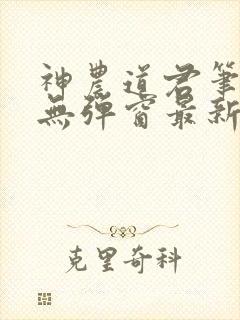 神農道君筆
無彈窗最新
克里奇科